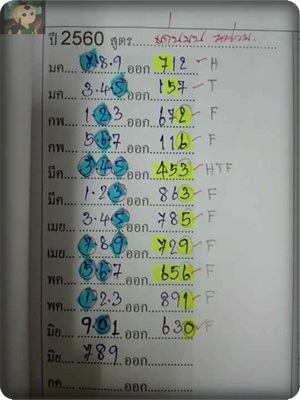 ปี 2560 สูตร... เด่นบน หน่วย.
มค.... 7.8.9 ออก 712 H
3.4.5 ออก. 157 T
กพ... 1.2.3 ออก 672 F
กพ.... 5.6.7 ออก. 116 F
มีค 3.4.5 ออก. 453 HTF
มีค... 1.2.3 ออก. 863 F
เมย... 3.4.5 ออก. 785 F
เมย... 7.8.9 ออก. 729 F
พค... 5.6.7 ออก. 656 F
พค... 1.2.3 ออก. 891 F
มิย.... 9.0.1 ออก. 630 F
มิย... 789 ออก.
กค... ออก.